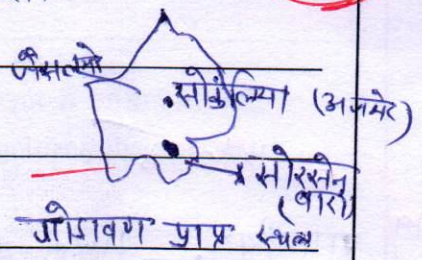 जैसलमेर
सोकलिया (अजमेर)
सोरसेन
(बारां)
गोडावण प्राप्त स्थल